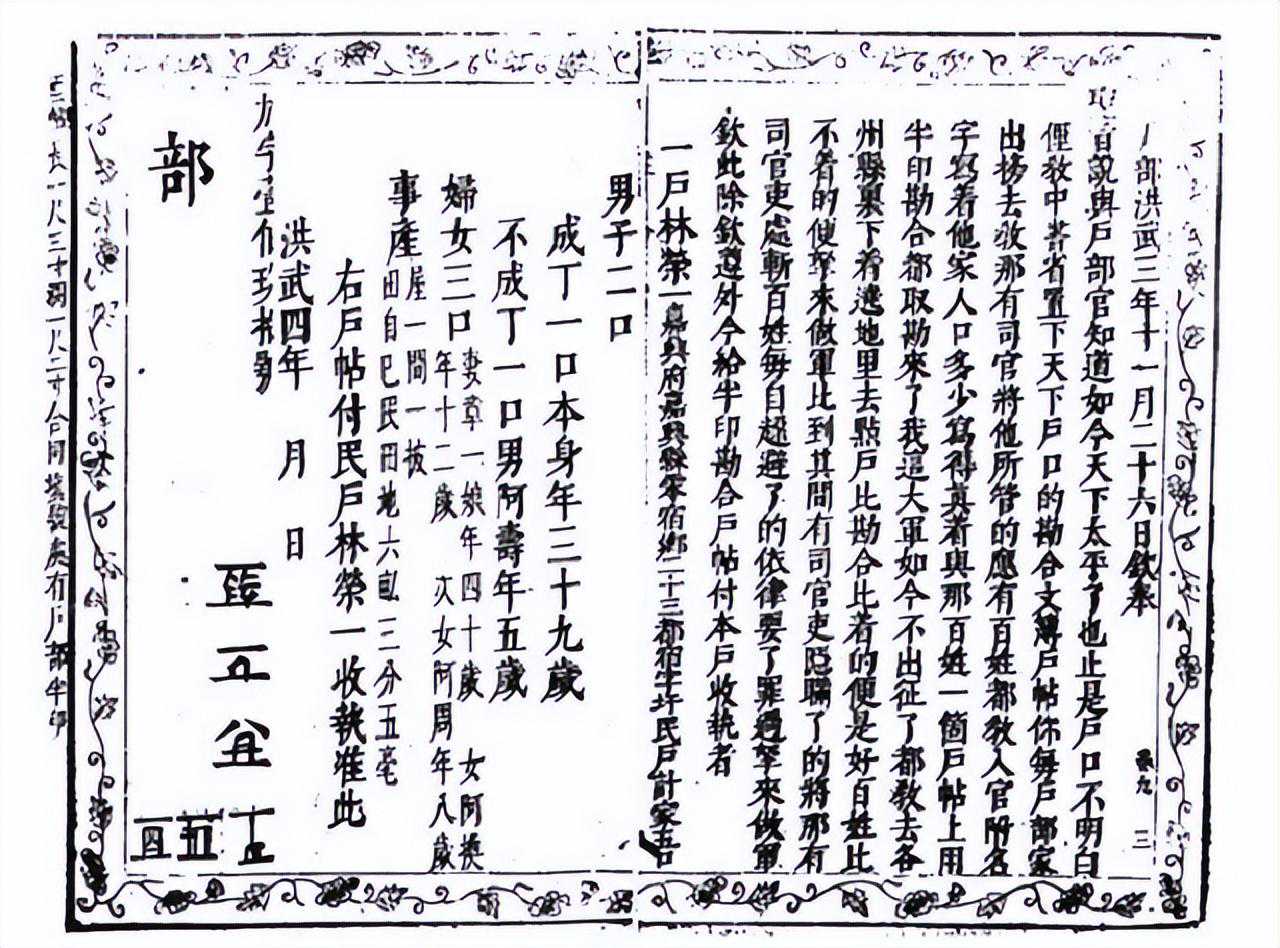 部洪武三年十一月二十六日欽奉
旨說與戶部官知道如今天下太平了也止是戶口不明白
俚教中書省置下天下戶口的勘合文簿戶帖你每戶部家
出榜去教那有司官將他所管的應有百姓都教入官附名
字寫着他家人口多少寫得真着與那百姓一箇戶帖上用
半印勘合都取勘來了我這大軍如今不出征了都教去各
州縣裏下着遶地里去點戶比勘合比着的便是好百姓比
不着的便拏來做軍比到其間有司官吏隱瞞了的將那有
司官吏處斬百姓每自趓避了的依律要了罪過拏來做軍
欽此除欽遵外今給半印勘合戶帖付本戶收執者
一戶林榮一嘉興府嘉興縣零宿鄉二十三都宿字圩民戶計家五口
男子二口
成丁一口本身年三十九歲
不成丁一口男阿壽年五歲
婦女三口
妻章一娘年四十歲 女阿換
年十二歲 次女阿周年八歲
事產
屋一間一披
田自己民田地六畝三分五毫
右戶帖付民戶林榮一收執准此
洪武四年 月 日
部